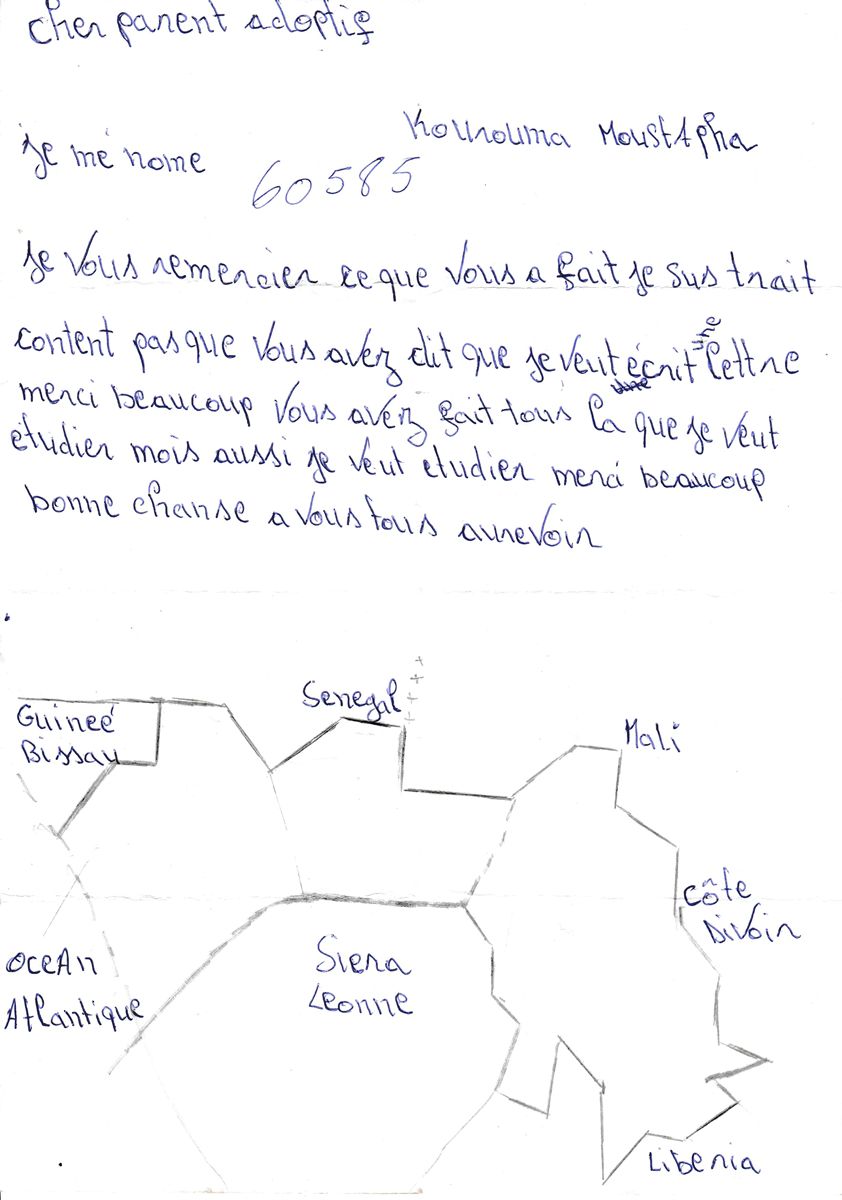 cher parent adoptif
Kourouma Moustapha
je me nome
60585
je vous remercier ce que vous a fait je sus trait
content pasque vous avez dit que je veut écrit lettre
merci beaucoup vous avez fait tous la que je veut
etudier mois aussi je veut etudier merci beaucoup
bonne chanse a vous tous aurevoir
Senegal
Guineé
Bissau
Mali
Côte
Divoir
OceAn
Atlantique
Siera
Leonne
Liberia